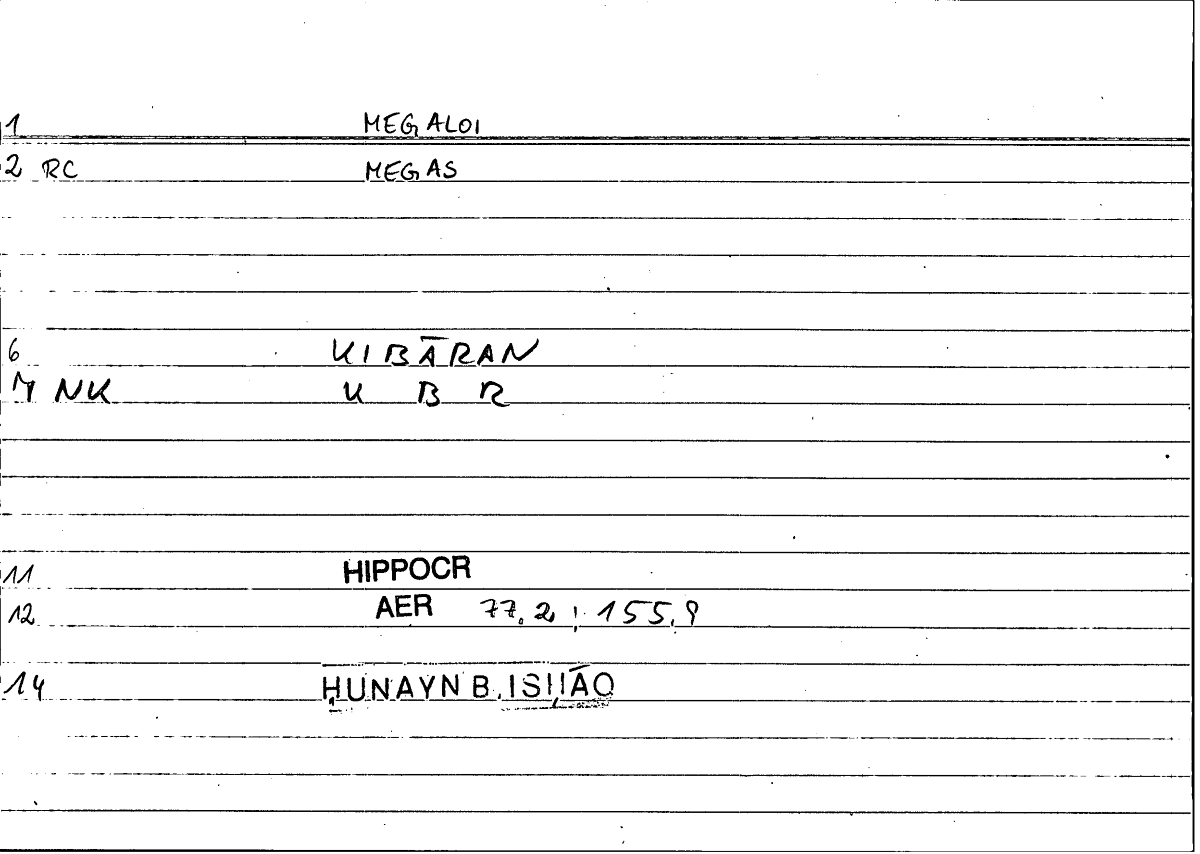 1 MEGALOI
2 RC MEGAS
6 KIBĀRAN
7 NK K B R
11 HIPPOCR
12 AER 77,2 ; 155,9
14 ḤUNAYN B. ISḤĀQ